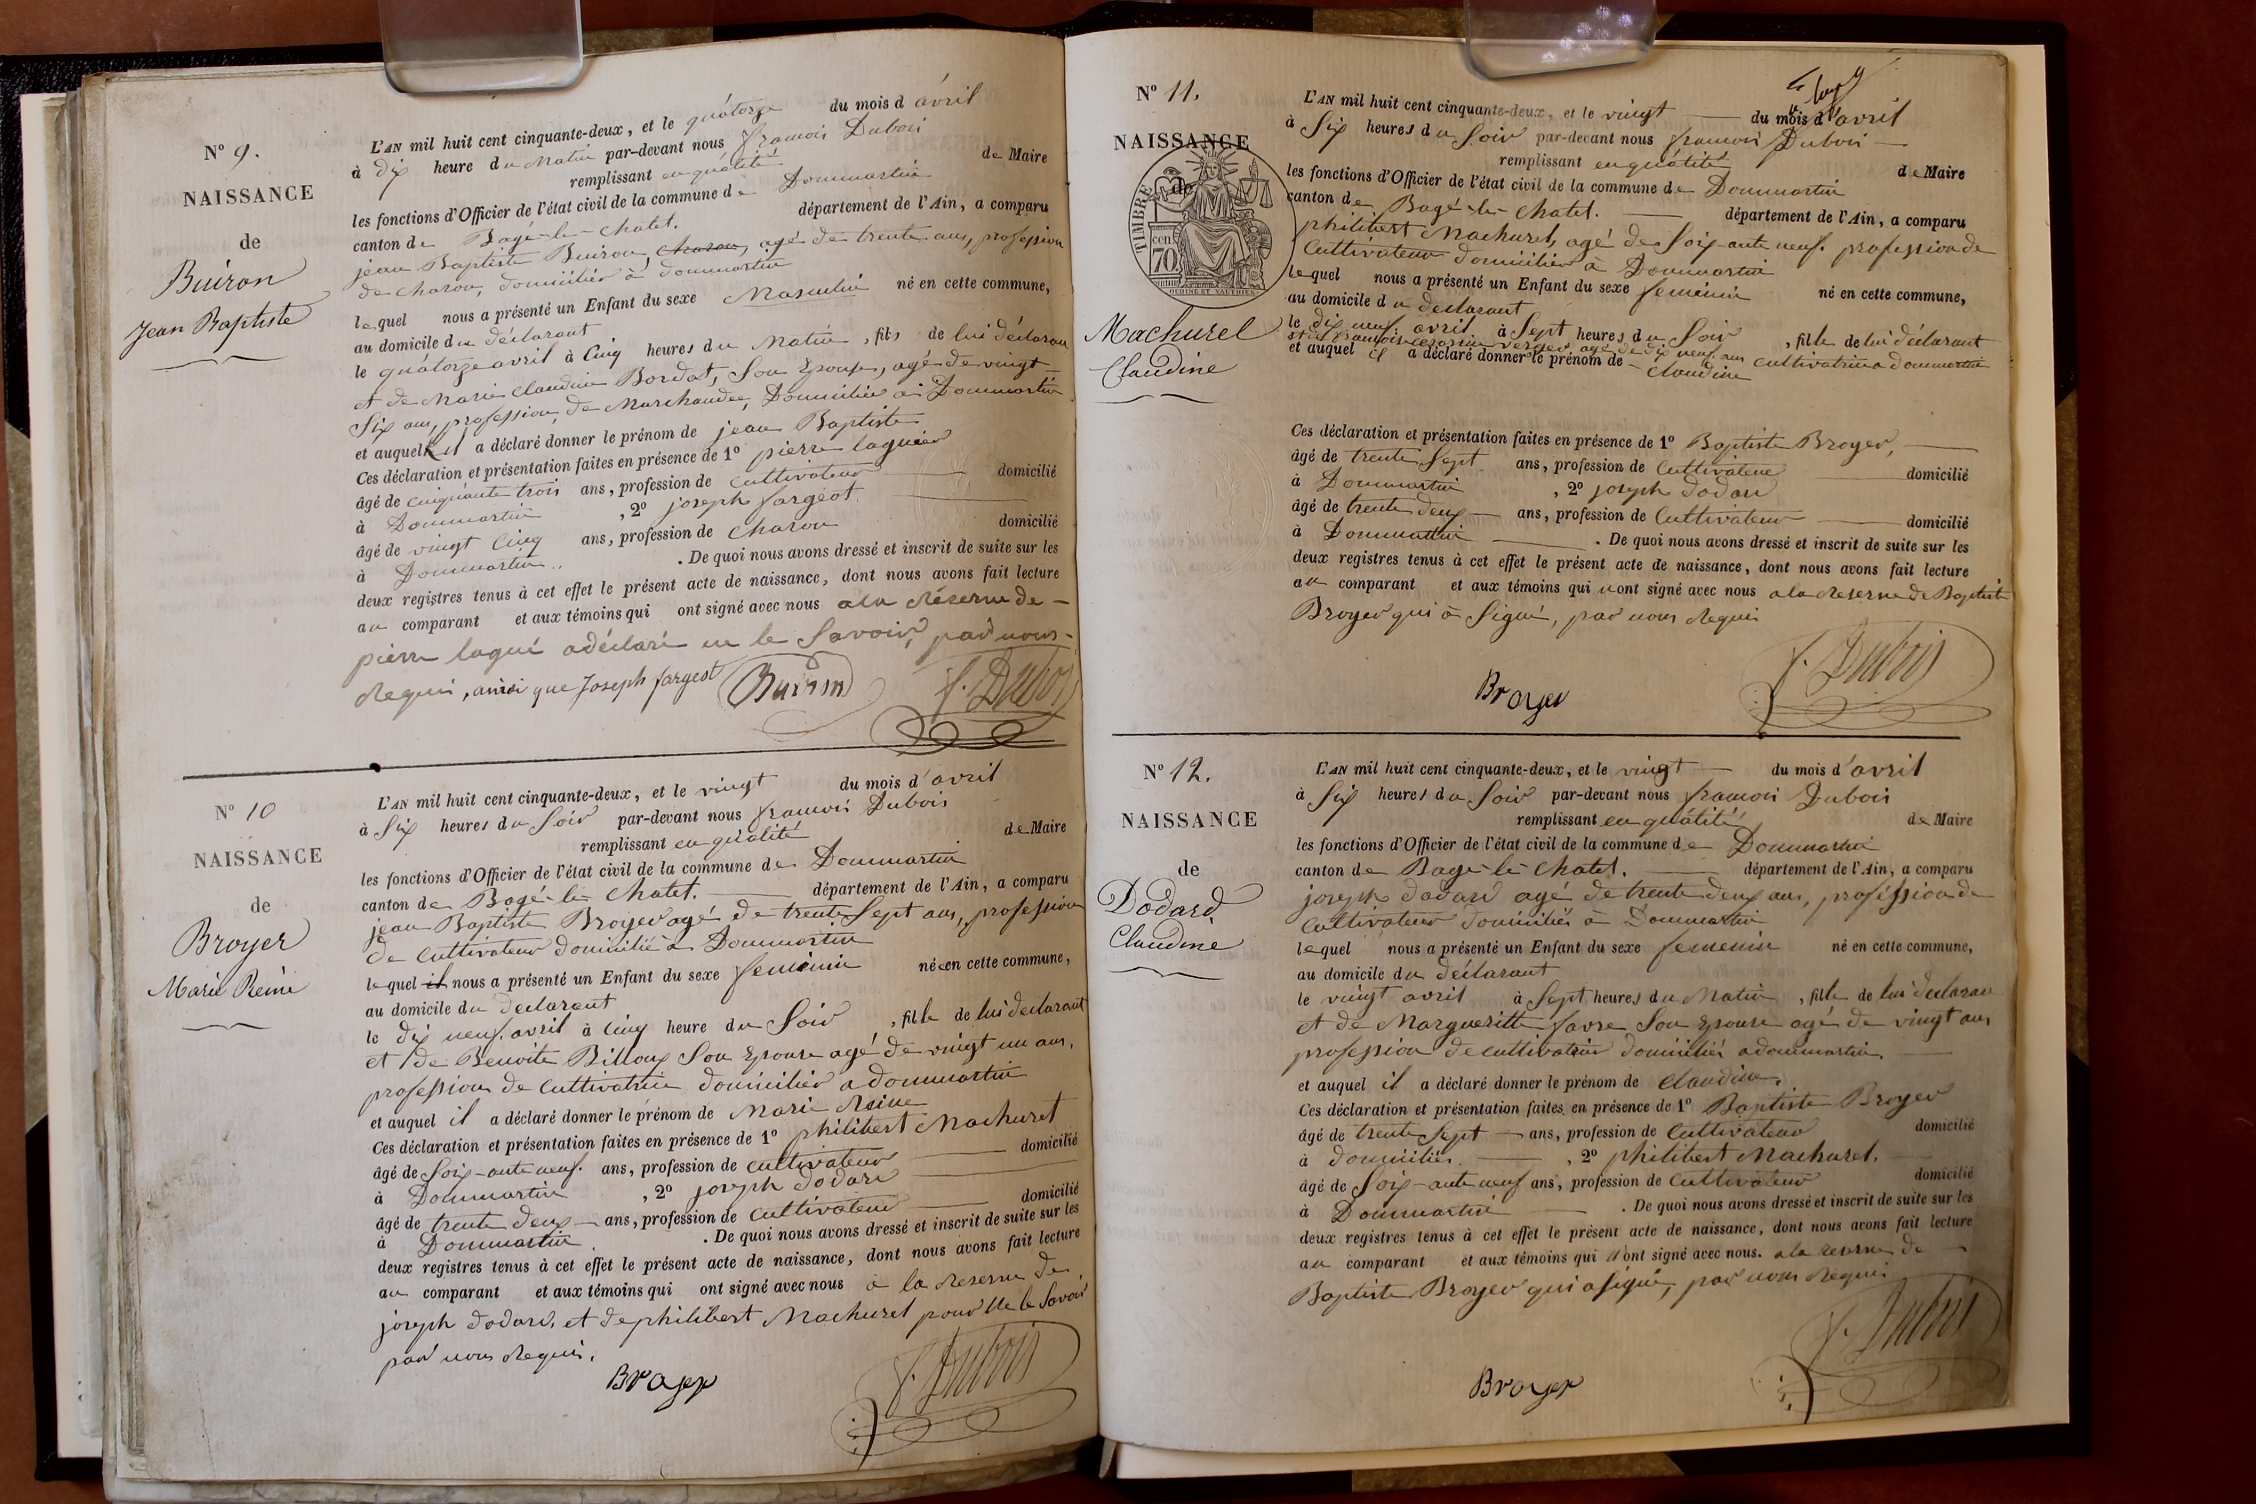 N° 9.
NAISSANCE
de
Buiron
Jean Baptiste
L'AN mil huit cent cinquante-deux, et le quátorze du mois d avril
à dix heure du Matin par-devant nous francois Dubois
remplissant en quálité de Maire
les fonctions d'Officier de l'état civil de la commune de Dommartin
canton de Bagé-le-Chatel. département de l'Ain, a comparu
jean Baptiste Buiron, charon, agé de trente ans, profession
de charon, domicilier à dommartin
lequel nous a présenté un Enfant du sexe Masculin né en cette commune,
au domicile du déclarant
le quátorze avril à Cinq heures du Matin, fils de lui déclaran
et de Marie Claudine Bordat, Son Epouse, agé de vingt-
Six ans, profession de Marchandee, Domicilier à Dommartin
et auquel il a déclaré donner le prénom de jean Baptiste
Ces déclaration et présentation faites en présence de 1° pierre laguier
âgé de cinquante trois ans, profession de cultivateur domicilié
à Dommartin, 2° joseph fargeot.
âgé de vingt Cinq ans, profession de charon domicilié
à Dommartin. . De quoi nous avons dressé et inscrit de suite sur les
deux registres tenus à cet effet le présent acte de naissance, dont nous avons fait lecture
au comparant et aux témoins qui ont signé avec nous a la Réserve de -
pierre lagué adéclaré ne le Savoir, par nous-
Requis, ainsi que Joseph fargeot Buiron f. Dubois
N° 10
NAISSANCE
de
Broyer
Marie Reine
L'AN mil huit cent cinquante-deux, et le vingt du mois d'avril
à Six heures du Soir par-devant nous francois Dubois
remplissant en quálité de Maire
les fonctions d'Officier de l'état civil de la commune de Dommartin
canton de Bagé-le-Chatel. département de l'Ain, a comparu
jean Baptiste Broyer agé de trente Sept ans, profession
de cultivateur domicilié à Dommartin
lequel il nous a présenté un Enfant du sexe feminin née en cette commune,
au domicile du declarant
le dix neuf avril à Cinq heure du Soir, fille de lui declarant
et de Benoite Billoux Son Epouse agé de vingt un ans,
profession de Cultivatrice domicilier a dommartin
et auquel il a déclaré donner le prénom de Marie Reine
Ces déclaration et présentation faites en présence de 1° philibert Machuret
âgé de Soix-ante neuf. ans, profession de cultivateur domicilié
à Dommartin, 2° joseph dodard
âgé de trente deux ans, profession de cultivateur domicilié
à Dommartin. . De quoi nous avons dressé et inscrit de suite sur les
deux registres tenus à cet effet le présent acte de naissance, dont nous avons fait lecture
au comparant et aux témoins qui ont signé avec nous à la Reserve de
joseph dodard, et de philibert Machuret pour Ne le Savoir
par nous Requis.
Broyer f. Dubois
N° 11.
NAISSANCE
de
TIMBRE
cen
70
Machurel
Claudine
L'AN mil huit cent cinquante-deux, et le vingt du mois d'avril
à Six heures du Soir par-devant nous francois Dubois
remplissant en quálité de Maire
les fonctions d'Officier de l'état civil de la commune de Dommartin
canton de Bagé-le-Chatel. département de l'Ain, a comparu
philibert Machuret, agé de Soix-ante neuf. profession de
Cultivateur domicilier à Dommartin
lequel nous a présenté un Enfant du sexe feminin né en cette commune,
au domicile du declarant
le dix neuf. avril à Sept heures du Soir, fille de lui déclarant
verger agé de dix neuf ans cultivatrice a dommartin
et auquel il a déclaré donner le prénom de Claudine
Ces déclaration et présentation faites en présence de 1° Baptiste Broyer,
âgé de trente Sept ans, profession de Cultivateur domicilié
à Dommartin, 2° joseph dodard
âgé de trente deux ans, profession de Cultivateur domicilié
à Dommartin . De quoi nous avons dressé et inscrit de suite sur les
deux registres tenus à cet effet le présent acte de naissance, dont nous avons fait lecture
au comparant et aux témoins qui nont signé avec nous a la Reserve de Baptiste
Broyer qui à Signé, par nous Requis
Broyer f. Dubois
N° 12.
NAISSANCE
de
Dodard
Claudine
L'AN mil huit cent cinquante-deux, et le vingt du mois d'avril
à Six heures du Soir par-devant nous francois Dubois
remplissant en quálité de Maire
les fonctions d'Officier de l'état civil de la commune de Dommartin
canton de Bage-le-Chatel. département de l'Ain, a comparu
joseph dodard agé de trente deux ans, profession de
Cultivateur domicilié à Dommartin
lequel nous a présenté un Enfant du sexe femenin né en cette commune,
au domicile du déclarant
le vingt avril à Sept heures du Matin, fille de lui declaran
et de Margueritte favre Son Epouse agé de vingt ans
profession de cultivatrice domicilier a dommartin.
et auquel il a déclaré donner le prénom de Claudine.
Ces déclaration et présentation faites en présence de 1° Baptiste Broyer
âgé de trente Sept ans, profession de Cultivateur domicilié
à domicilier. , 2° philibert Machuret.
âgé de Soix-ante neuf ans, profession de Cultivateur domicilié
à Dommartin . De quoi nous avons dressé et inscrit de suite sur les
deux registres tenus à cet effet le présent acte de naissance, dont nous avons fait lecture
au comparant et aux témoins qui nont signé avec nous. a la reserve de
Baptiste Broyer qui a signé, par nous Requis
Broyer f. Dubois